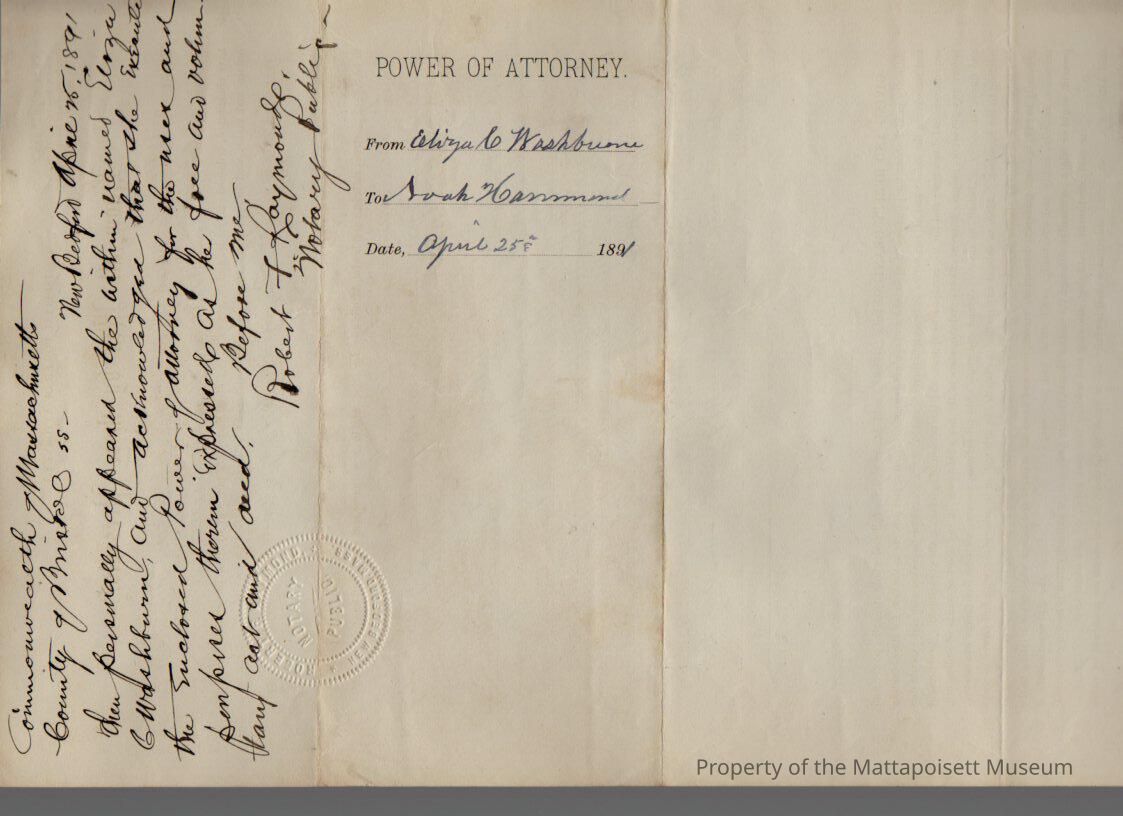 Commonwealth of Massachusetts
County of Bristol ss - New Bedford April 25, 1891
then personally appeared the within named Eliza
C Washburn, and acknowledged that she Execute
the Enclosed Power of attorney for the uses and
purposes therein Expressed as he free and volun-
tary act and deed.
Before me
Robert T Raymond.
Notary Public
POWER OF ATTORNEY.
From Eliza C Washburne
To Noah Hammond
Date, April 25th 1891
NOTARY
PUBLIC
NEW BEDFORD
Property of the Mattapoisett Museum